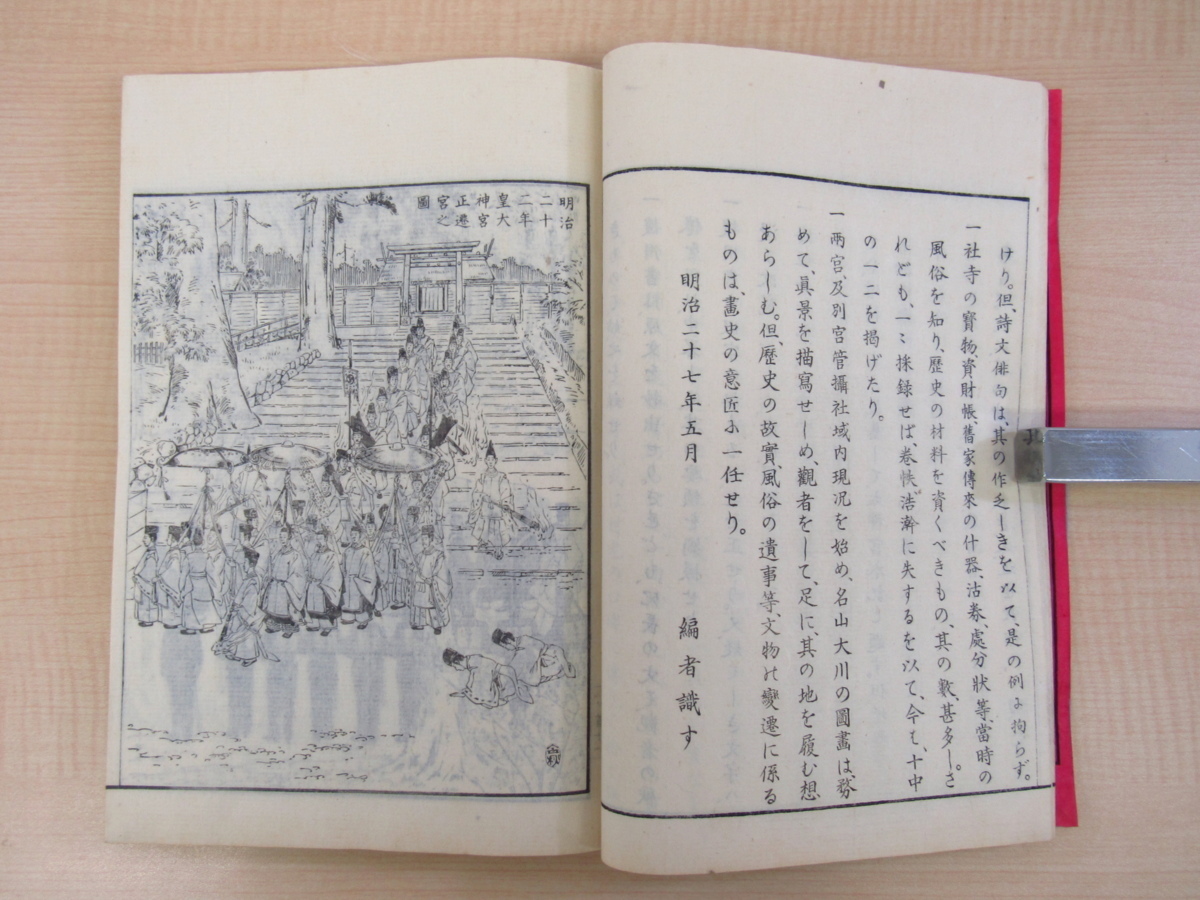 けり。但、詩文俳句は、其の作乏しきを以て、是の例に拘らず。
一社寺の寳物、資財帳、舊家傳來の什器、沽券、處分狀等、當時の
風俗を知り、歷史の材料を資くべきもの、其の數甚多し。さ
れども、一〻採録せば、卷帙浩澣に失するを以て、今も、十中
の一二を揭げたり。
一兩宮及別宮管攝社域内現况を始め、名山大川の圖畫は、務
めて、眞景を描寫せしめ、觀者をして、足に、其の地を履む想
あらしむ。但、歷史の故實、風俗の遺事等、文物の變遷に係る
ものは、畫史の意匠に一任せり。
明治二十七年五月
編者識す
明治
二十
二年
皇大
神宮
正遷
宮之
圖